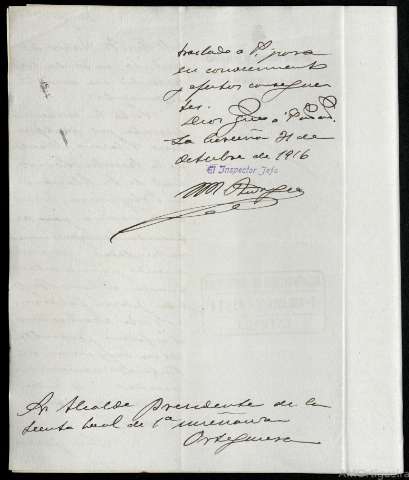 traslado a V. para
su conocimiento
y efectos consiguien
tes.
Dios gue a V. 
La Coruña 31 de
Octubre de 1916
El Inspector Jefe
Sr Alcalde Presidente de la
Junta local de 1ª enseñanza
Ortigueira